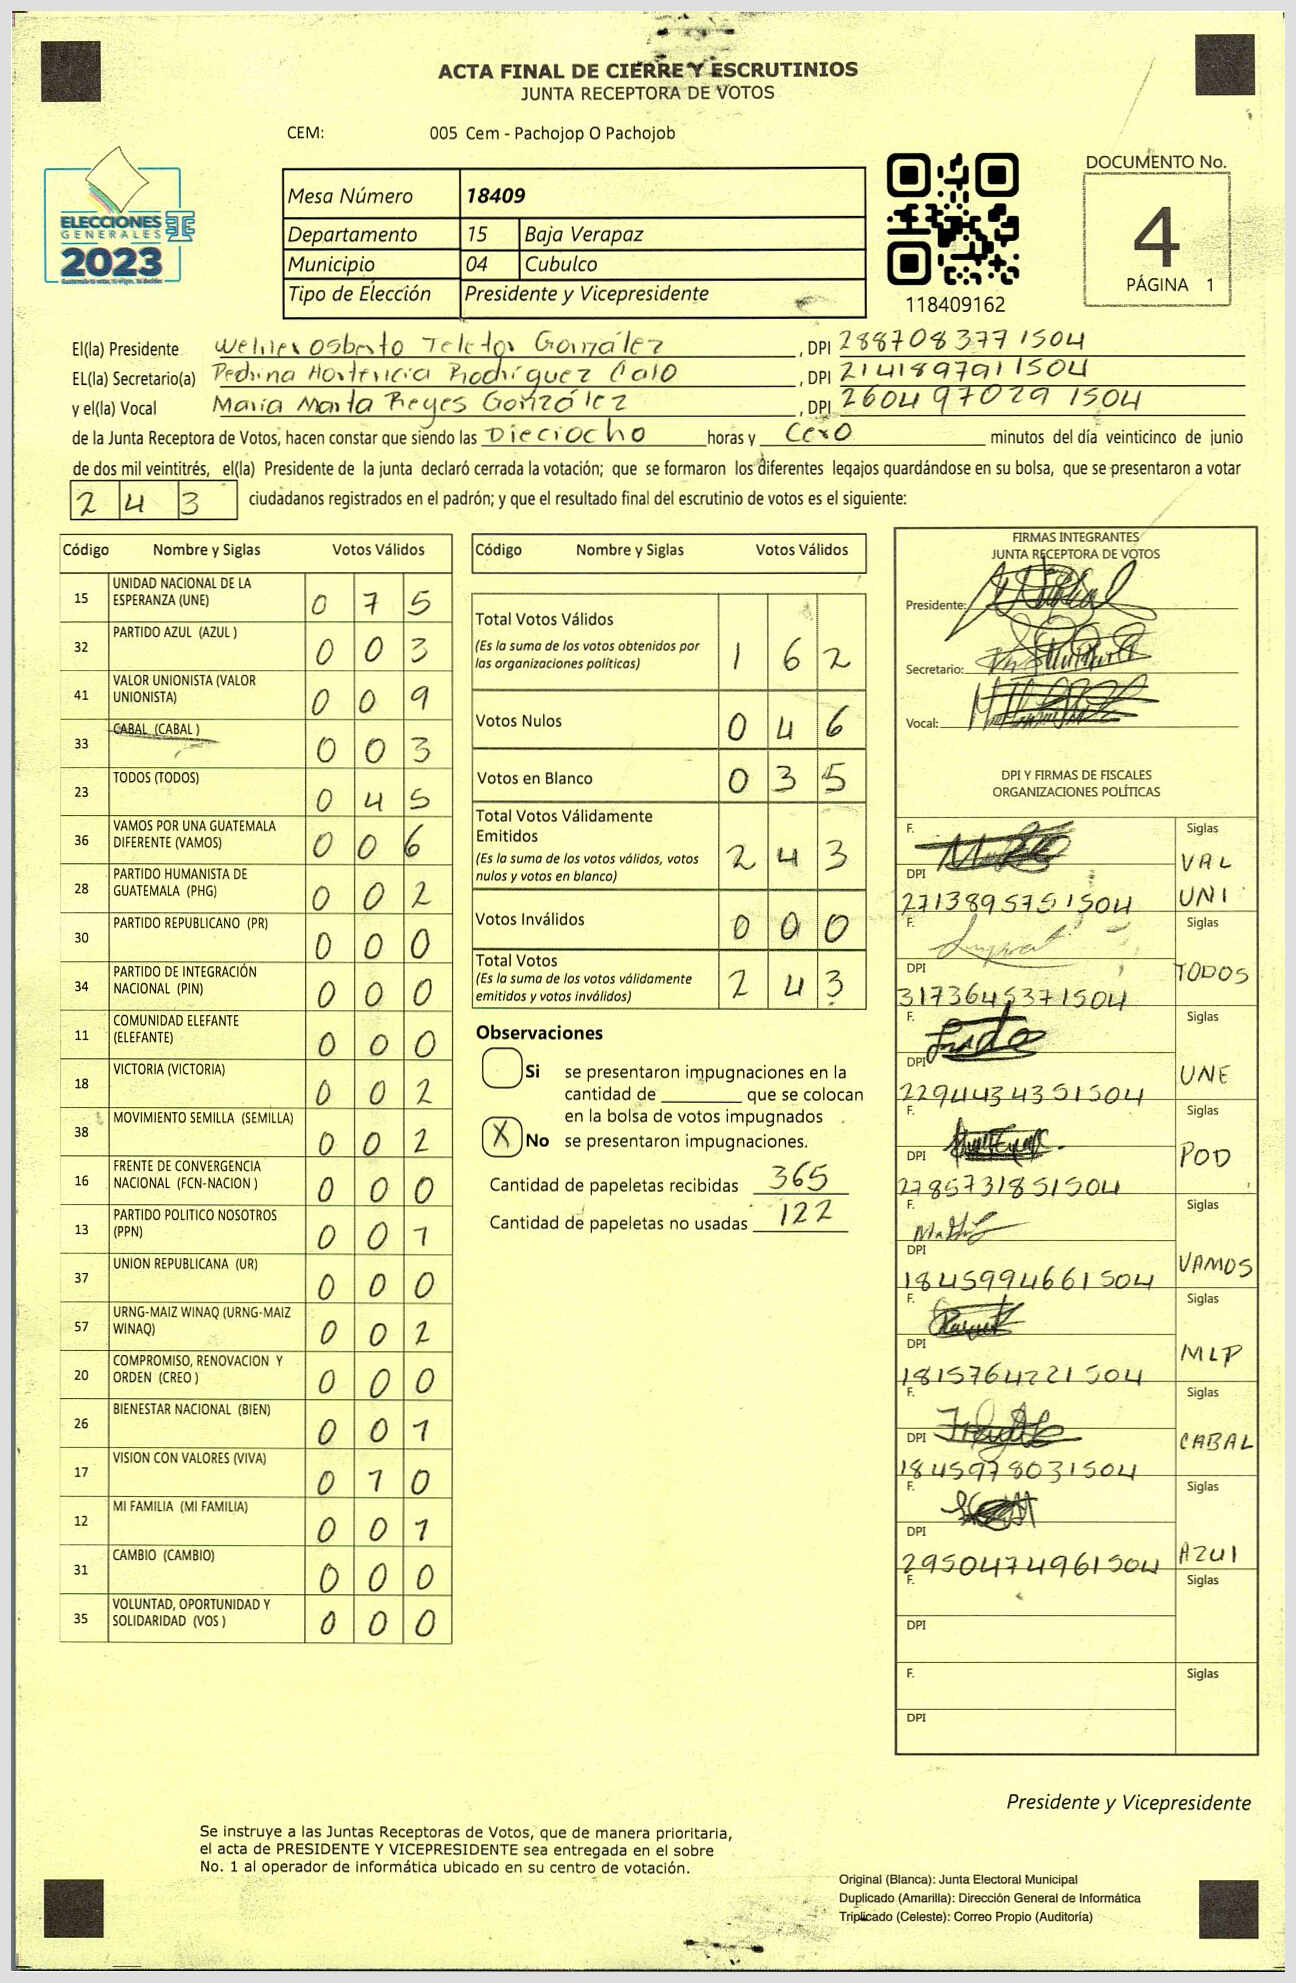 ACTA FINAL DE CIERRE Y ESCRUTINIOS
JUNTA RECEPTORA DE VOTOS
CEM: 005 Cem - Pachojop O Pachojob
ELECCIONES
GENERALES
2023
Mesa Número 18409
Departamento 15 Baja Verapaz
Municipio 04 Cubulco
Tipo de Elección Presidente y Vicepresidente
118409162
DOCUMENTO No.
4
PÁGINA 1
El(la) Presidente Osberto González, DPI 2887083771504
EL(la) Secretario(a) Hortencia Rodríguez, DPI 2141897911504
y el(la) Vocal María Marta Reyes González, DPI 2604970291504
de la Junta Receptora de Votos, hacen constar que siendo las Dieciocho horas y Cero minutos del día veinticinco de junio
de dos mil veintitrés, el(la) Presidente de la junta declaró cerrada la votación; que se formaron los diferentes legajos guardándose en su bolsa, que se presentaron a votar
243 ciudadanos registrados en el padrón; y que el resultado final del escrutinio de votos es el siguiente:
Código Nombre y Siglas Votos Válidos
15 UNIDAD NACIONAL DE LA ESPERANZA (UNE) 0 7 5
32 PARTIDO AZUL (AZUL ) 0 0 3
41 VALOR UNIONISTA (VALOR UNIONISTA) 0 0 9
33 CABAL (CABAL ) 0 0 3
23 TODOS (TODOS) 0 4 5
36 VAMOS POR UNA GUATEMALA DIFERENTE (VAMOS) 0 0 6
28 PARTIDO HUMANISTA DE GUATEMALA (PHG) 0 0 2
30 PARTIDO REPUBLICANO (PR) 0 0 0
34 PARTIDO DE INTEGRACIÓN NACIONAL (PIN) 0 0 0
11 COMUNIDAD ELEFANTE (ELEFANTE) 0 0 0
18 VICTORIA (VICTORIA) 0 0 2
38 MOVIMIENTO SEMILLA (SEMILLA) 0 0 2
16 FRENTE DE CONVERGENCIA NACIONAL (FCN-NACION ) 0 0 0
13 PARTIDO POLITICO NOSOTROS (PPN) 0 0 1
37 UNION REPUBLICANA (UR) 0 0 0
57 URNG-MAIZ WINAQ (URNG-MAIZ WINAQ) 0 0 2
20 COMPROMISO, RENOVACION Y ORDEN (CREO ) 0 0 0
26 BIENESTAR NACIONAL (BIEN) 0 0 1
17 VISION CON VALORES (VIVA) 0 1 0
12 MI FAMILIA (MI FAMILIA) 0 0 1
31 CAMBIO (CAMBIO) 0 0 0
35 VOLUNTAD, OPORTUNIDAD Y SOLIDARIDAD (VOS ) 0 0 0
Código Nombre y Siglas Votos Válidos
Total Votos Válidos 1 6 2
(Es la suma de los votos obtenidos por
las organizaciones políticas)
Votos Nulos 0 4 6
Votos en Blanco 0 3 5
Total Votos Válidamente
Emitidos 2 4 3
(Es la suma de los votos válidos, votos
nulos y votos en blanco)
Votos Inválidos 0 0 0
Total Votos 2 4 3
(Es la suma de los votos válidamente
emitidos y votos inválidos)
Observaciones
Si se presentaron impugnaciones en la
cantidad de ________ que se colocan
en la bolsa de votos impugnados
X No se presentaron impugnaciones.
Cantidad de papeletas recibidas 365
Cantidad de papeletas no usadas 122
FIRMAS INTEGRANTES
JUNTA RECEPTORA DE VOTOS
Presidente:
Secretario:
Vocal:
DPI Y FIRMAS DE FISCALES
ORGANIZACIONES POLÍTICAS
F. Siglas
DPI VAL
2713895751504 UNI
F. Siglas
DPI TODOS
3173645371504
F. Siglas
DPI UNE
2294434351504
F. Siglas
DPI POD
2785731851504
F. Siglas
DPI VAMOS
1845994661504
F. Siglas
DPI MLP
1815764221504
F. Siglas
DPI CABAL
1845978031504
F. Siglas
DPI AZUl
2950474961504
F. Siglas
DPI
F. Siglas
DPI
Presidente y Vicepresidente
Se instruye a las Juntas Receptoras de Votos, que de manera prioritaria,
el acta de PRESIDENTE Y VICEPRESIDENTE sea entregada en el sobre
No. 1 al operador de informática ubicado en su centro de votación.
Original (Blanca): Junta Electoral Municipal
Duplicado (Amarilla): Dirección General de Informática
Triplicado (Celeste): Correo Propio (Auditoría)